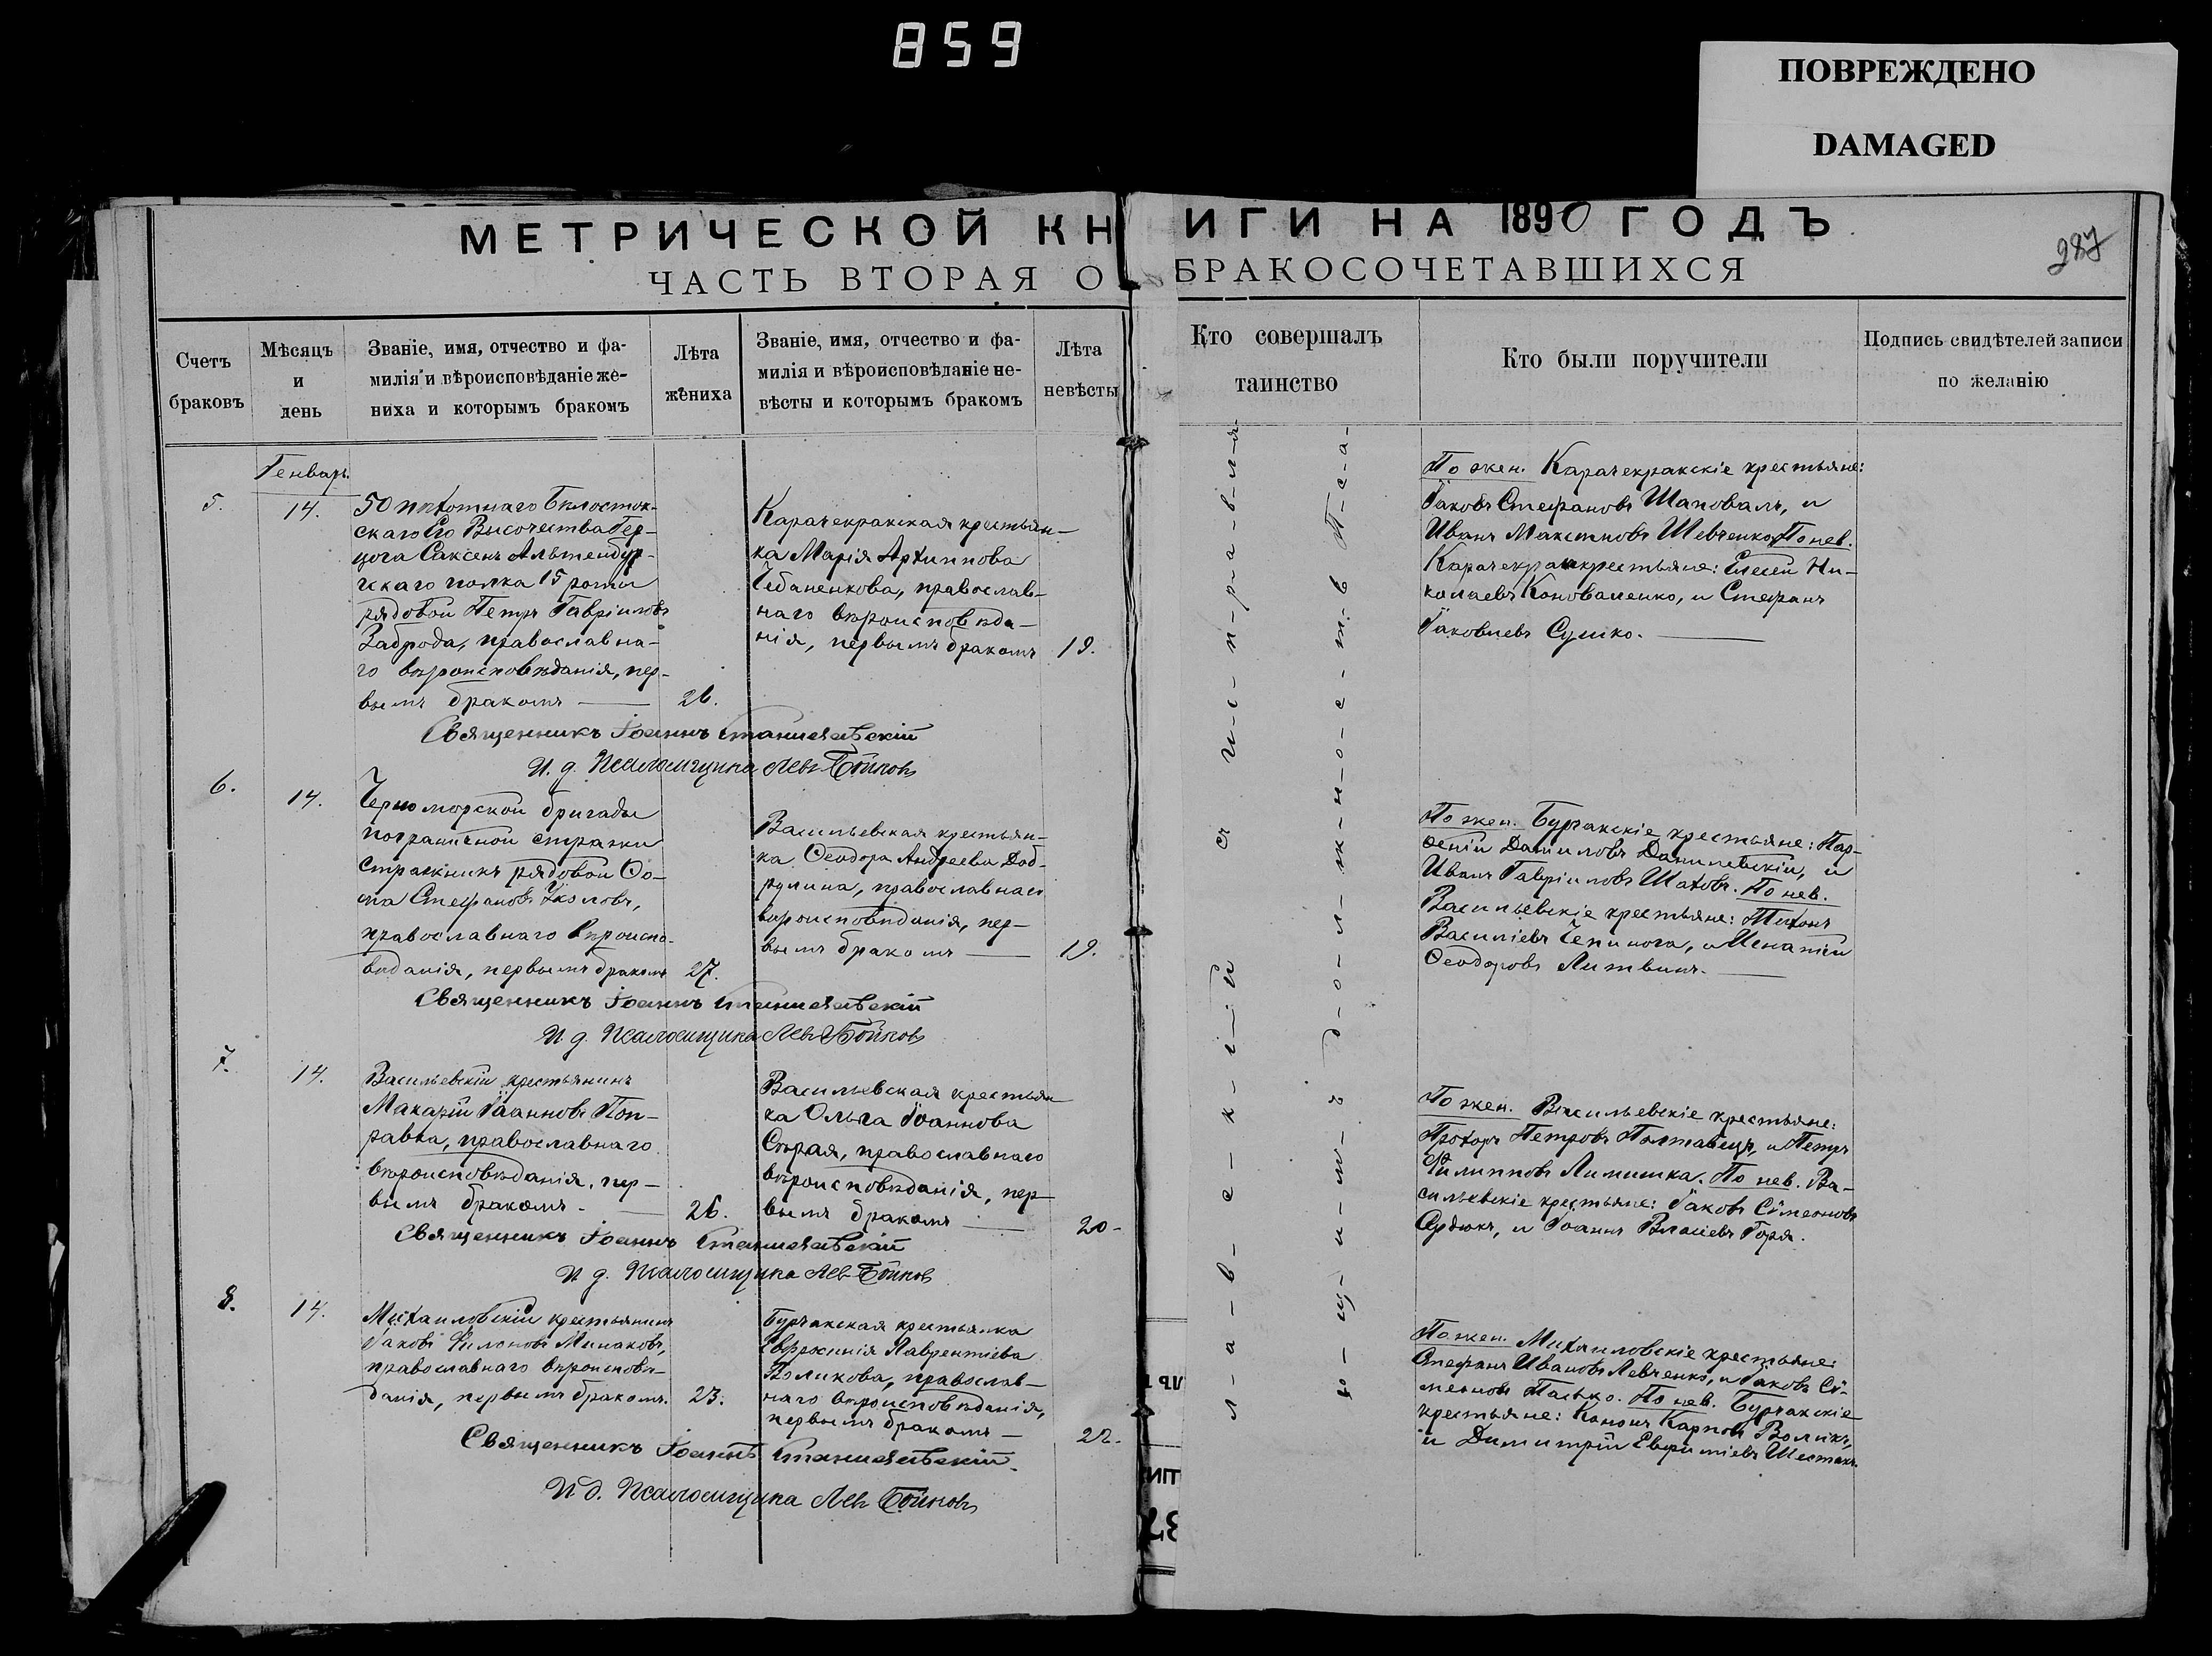 859
ПОВРЕЖДЕНО
DAMAGED
МЕТРИЧЕСКОЙ КНИГИ НА 1890 ГОДЪ
287
ЧАСТЬ ВТОРАЯ О БРАКОСОЧЕТАВШИХСЯ
Счетъ
браковъ
Мѣсяцъ
и
день
Званіе, имя, отчество и фа-
милія и вѣроисповѣданіе же-
ниха и которымъ бракомъ
Лѣта
жениха
Званіе, имя, отчество и фа-
милія и вѣроисповѣданіе не-
вѣсты и которымъ бракомъ
Лѣта
невѣсты
Кто совершалъ
таинство
Кто были поручители
Подпись свидѣтелей записи
по желанію
Генварь
5.
14.
50 пѣхотнаго Бѣлосток-
скаго Его Высочества Гер-
цога Саксенъ Альтенбур-
гскаго полка 15 роты
рядовой Петръ Гавріиловъ
Заброда, православна-
го вѣроисповѣданія, пер-
вымъ бракомъ
26.
Карачекракская крестьян-
ка Марія Архиппова
Чебаненкова, православ-
наго вѣроисповѣда-
нія, первымъ бракомъ
19.
По жен. Карачекракскіе крестьяне:
Іаковъ Стефановъ Шаповалъ, и
Иванъ Максимовъ Шевченко. По нев.
Карачекрак. крестьяне: Елисей Ни-
колаевъ Коноваленко, и Стефанъ
Іаковлевъ Сушко.
Священникъ Іоаннъ Станиславскій
И. д. Псаломщика Левъ Бойковъ
6.
14.
Черноморской бригады
пограничной стражи
стражникъ рядовой Ѳо-
ма Стефановъ Уколовъ,
православнаго вѣроиспо-
вѣданія, первымъ бракомъ
27.
Васильевская крестьян-
ка Ѳеодора Андреева Доб-
рулина, православнаго
вѣроисповѣданія, пер-
вымъ бракомъ
19.
По жен. Бурчакскіе крестьяне: Пар-
ѳеній Даниловъ Данилевскій, и
Иванъ Гавріиловъ Шаховъ. По нев.
Васильевскіе крестьяне: Тихонъ
Василіевъ Чепинога, и Игнатій
Ѳеодоровъ Литвинъ.
Священникъ Іоаннъ Станиславскій
И. д. Псаломщика Левъ Бойковъ
7.
14.
Васильевскій крестьянинъ
Макарій Іоанновъ Поп-
равка, православнаго
вѣроисповѣданія, пер-
вымъ бракомъ.
26.
Васильевская крестьян-
ка Ольга Іоаннова
Сѣрая, православнаго
вѣроисповѣданія, пер-
вымъ бракомъ
20.
По жен. Васильевскіе крестьяне:
Прохоръ Петровъ Полтавецъ, и Петръ
Филипповъ Лимишка. По нев. Ва-
сильевскіе крестьяне: Іаковъ Симеоновъ
Сердюкъ, и Іоаннъ Власіевъ Горя.
Священникъ Іоаннъ Станиславскій
И. д. Псаломщика Левъ Бойковъ
8.
14.
Михаиловскій крестьянинъ
Іаковъ Филоновъ Минаковъ,
православнаго вѣроисповѣ-
данія, первымъ бракомъ.
23.
Бурчакская крестьянка
Евфросинія Лаврентіева
Воликова, православ-
наго вѣроисповѣданія,
первымъ бракомъ
22.
По жен. Михаиловскіе крестьяне:
Стефанъ Ивановъ Левченко, и Іаковъ Си-
меоновъ Палько. По нев. Бурчакскіе
крестьяне: Кононъ Карповъ Воликъ,
и Димитрій Евфиміевъ Шестакъ.
Священникъ Іоаннъ Станиславскій.
И д. Псаломщика Левъ Бойковъ
л-а-в-с-к-і-й съ и-с-п-р-а-в-л-я-
ю-щ-и-м-ъ д-о-л-ж-н-о-с-т-ь П-с-а-